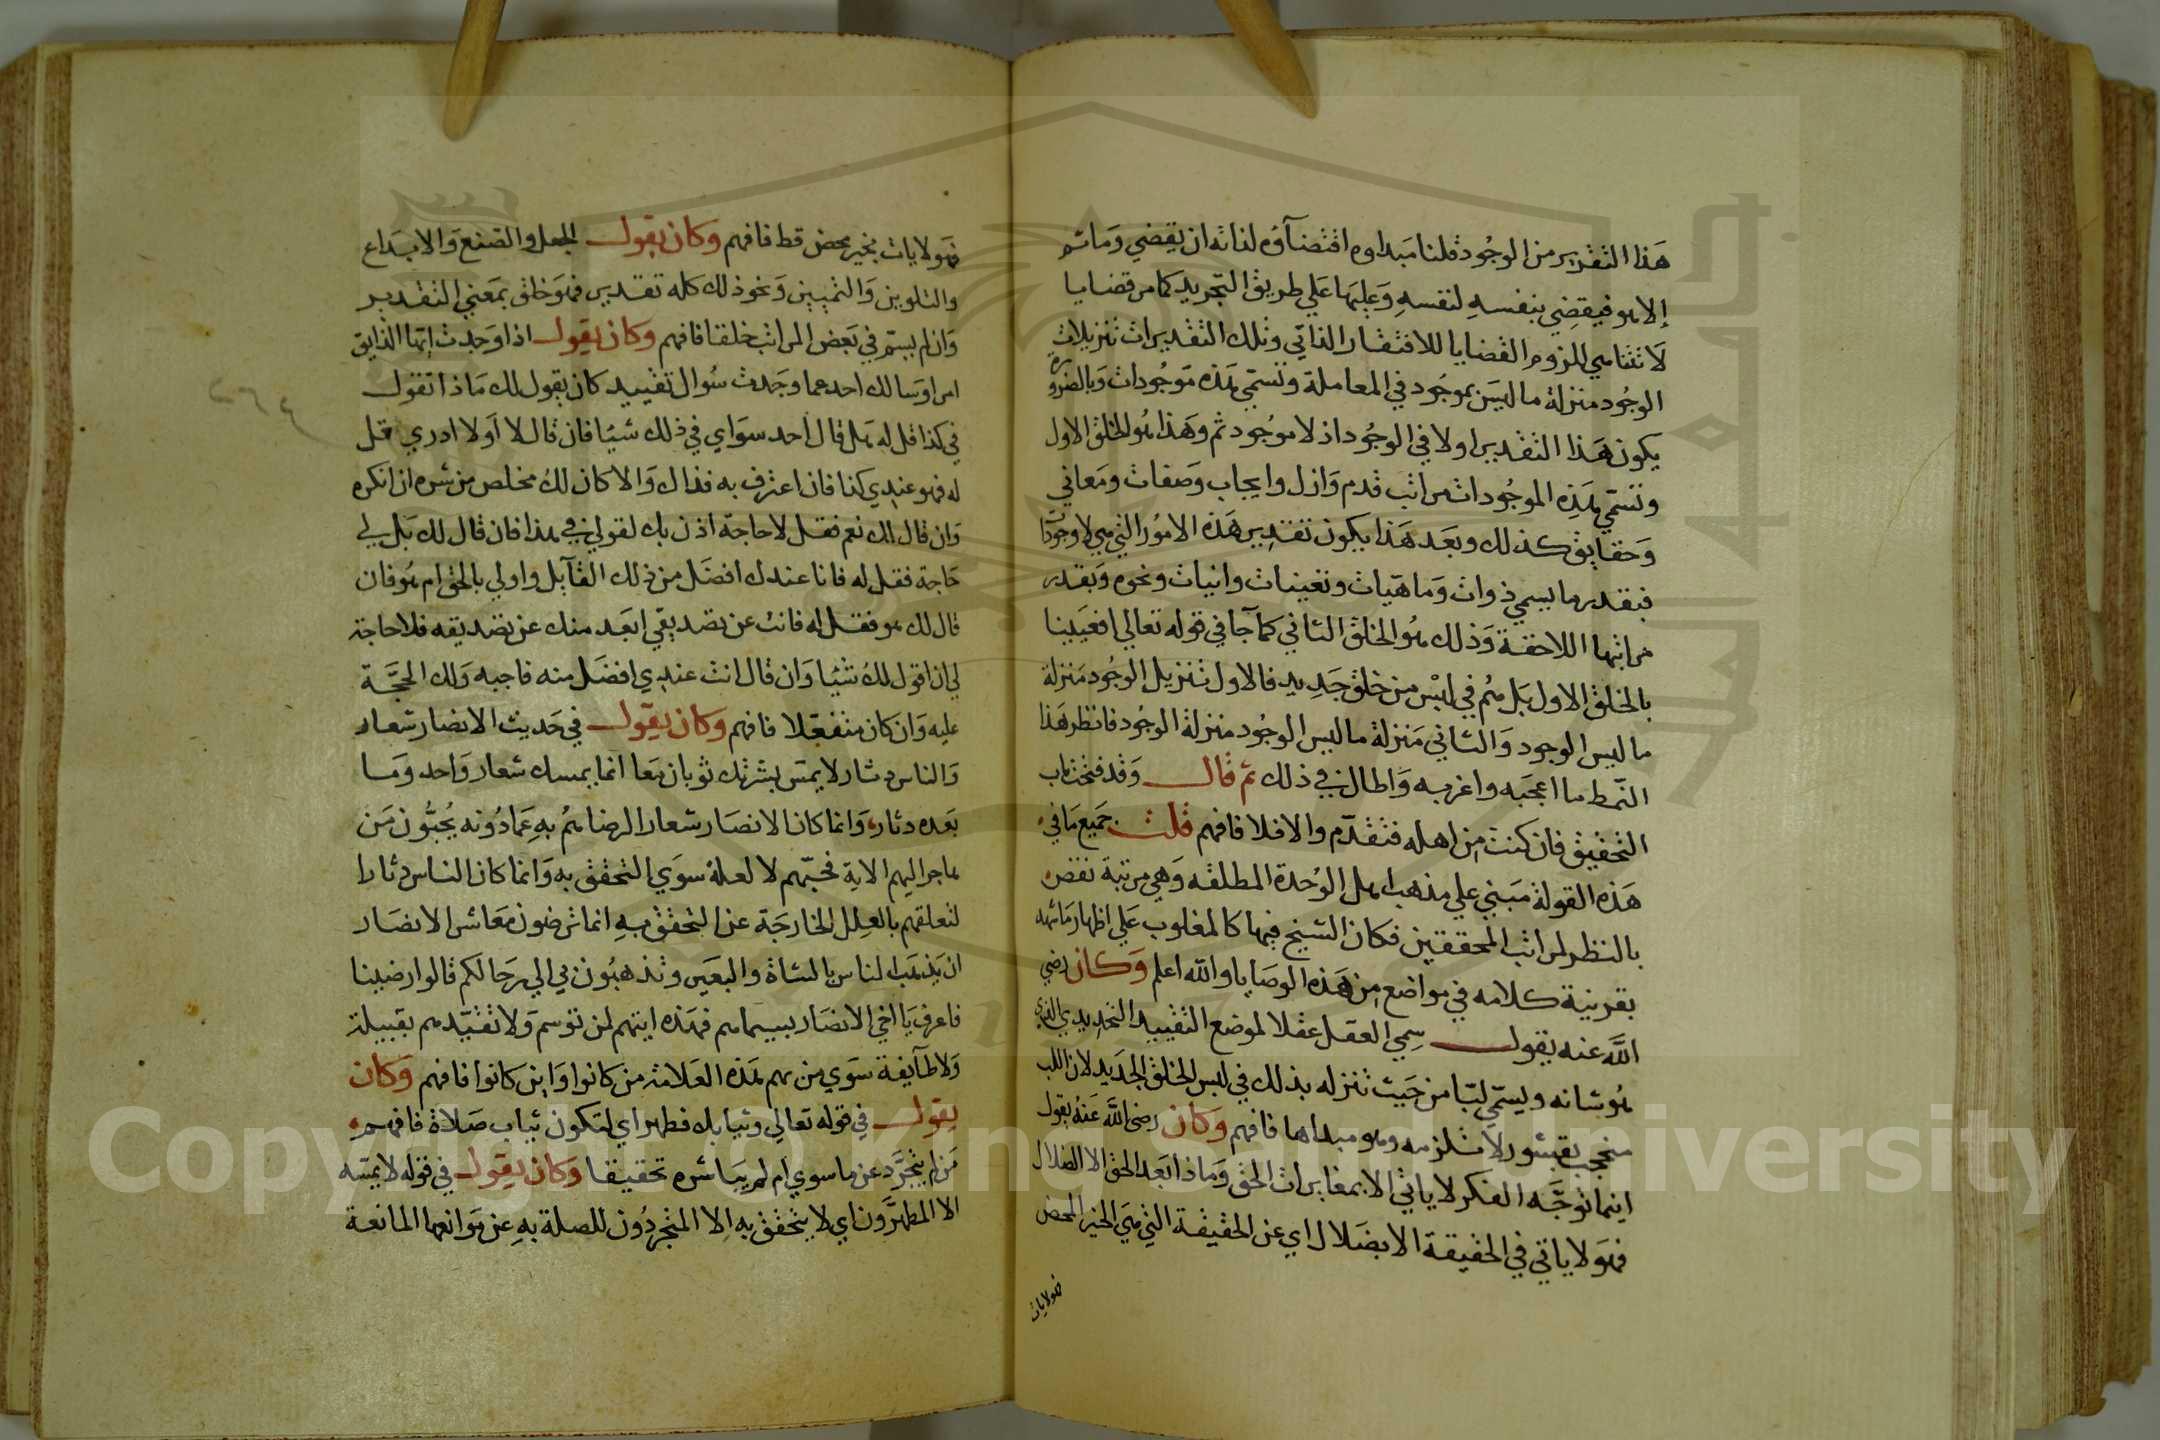 هذا التقدير من الوجود قلنا مبداوه اقتضآؤه لذاته ان يقضي وما ثم
إلا هو فيقضي بنفسه لنفسه وعليها علي طريق التجريد كما مر قضايا
لا تتناهي للزوم القضايا للافتقار الذاتي وتلك التقديرات تنزيلات
الوجود منزلة ما ليس بموجود في المعاملة وتسمي هذه موجودات وبالضرورة
يكون هذا التقدير اولا في الوجود اذ لا موجود ثم وهذا هو الخلق الاول
وتسمي هذه الموجودات مراتب قدم وازل وايجاب وصفات ومعاني
وحقايق كذلك وبعد هذا يكون تقدير هذه الامور التي هي لا وجودا
فيقدر ما يسمي ذوات وماهيات وتعينات وانيات ونحوه وبقدر
مراتبها اللاحقة وذلك هو الخلق الثاني كما جآ في قوله تعالي افعيينا
بالخلق الاول بل هم في لبس من خلق جديد فالاول تنزيل الوجود منزلة
ما ليس الوجود والثاني منزلة ما ليس الوجود منزلة الوجود فانظر هذا
النمط ما اعجبه واغربه واطال في ذلك ثم قال وقد فتحت باب
التحقيق فان كنت من اهله فتقدم والا فلا فافهم قلت جميع ما في
هذه القولة مبني علي مذهب اهل الوحدة المطلقه وهي مرتبة نقض
بالنظر لمراتب المحققين فكان الشيخ فيها كالمغلوب علي اظهار ما شهد
بقرينة كلامه في مواضع من هذه الوصايا والله اعلم وكان رضي
الله عنه يقول سمي العقل عقلا لموضع التقييد التحديدي الذي
هو شانه ويسمي لبا من حيث تنزله بذلك في لبس الخلق الجديد لان اللب
منحجب بقشور لا تلزمه وهو مبداها فافهم وكان رضي الله عنه يقول
اينما توجه الفكر لا ياتي الا بمغايرات الحق وماذا بعد الحق الا الضلال
فهو لا ياتي في الحقيقة الا بضلال اي عن الحقيقة التي هي الخير المحض
فهو لا يات
فهو لا يات بخير محض قط فافهم وكان يقول الجعل والصنع والابداع
والتلوين والتبيين ونحو ذلك كله تقدير فهو خلق بمعني التقدير
وان لم يسم في بعض المراتب خلقا فافهم وكان يقول اذا وجدت ايها الذايق
امرا وسالك احد عما وجدت سوال تقييد كان يقول لك ماذا تقول
في كذا قل له هل قال احد سواي في ذلك شيئا فان قال لا او لا ادري فقل
له فهو عندي كذا فان اعترف به فذاك والا كان لك مخلص من شره ان انكره
وان قال لك نعم فقل لا حاجة اذن بك لقولي في هذا فان قال لك بل لي
حاجة فقل له فانا عندك افضل من ذلك القآيل واولي بالحق ام هو فان
قال لك هو فقل له فانت عن تصديقي ابعد منك عن تصديقه فلا حاجة
لي ان اقول لك شيئا وان قال انت عندي افضل منه فاجبه ولك الحجة
عليه وان كان متفعلا فافهم وكان يقول في حديث الانصار شعار
والناس دثار لا يمس بشرتك ثوبان معا انما يمسك شعار واحد وما
بعده دثار وانما كان الانصار شعار الرضاهم به عما دونه يحبون من
هاجر اليهم الاية فحبهم لا لعلة سوي التحقق به وانما كان الناس دثارا
لتعلقهم بالعلل الخارجة عن التحقق به اما ترضون معاشر الانصار
ان يذهب الناس بالشاة والبعير وتذهبون بي الي رحالكم قالوا رضينا
فاعرف يا اخي الانصار بسيماهم فهذه ايتهم لمن توسم ولا تقيدهم بقبيلة
ولا طآيفة سوي من هم بهذه العلامة من كانوا واين كانوا فافهم وكان
يقول في قوله تعالي وثيابك فطهر اي لتكون ثياب صلاة فافهم
من لم يتجرد عن ما سوي ام لم يباشره تحقيقا وكان يقول في قوله لا يمسه
الا المطهرون اي لا يتحقق به الا المتجردون للصلة به عن موانعها المانعة
Copyright © King Saud University